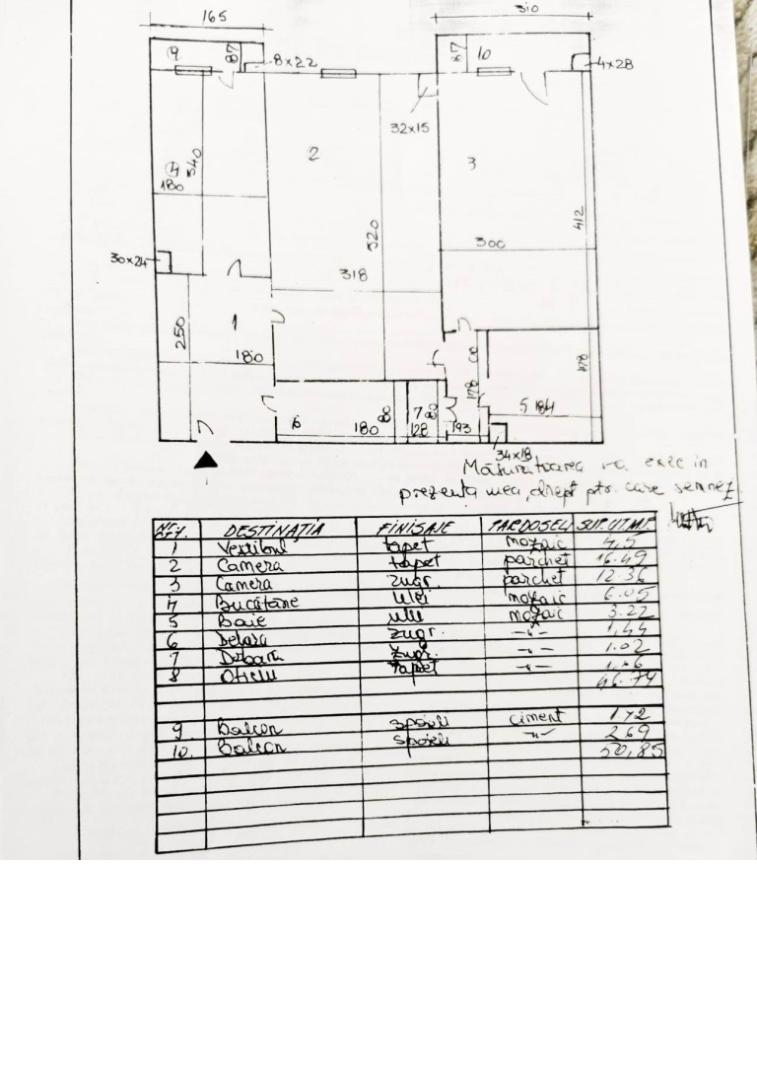 165
310
9
87
8x22
87
10
4x28
32x15
2
3
4
340
180
520
412
300
30x24
318
250
1
180
178
178
6
180
80
7
128
80
93
5
184
34x18
Măsurătoarea s-a exec in
prezența mea, drept ptr. care semnez
Nr. DESTINAȚIA FINISAJE PARDOSELI SUP. UT. M²
1 Vestibul tapet mozaic 4,5
2 Camera tapet parchet 16.49
3 Camera zugr. parchet 12.36
4 Bucătărie ulei mozaic 6.05
5 Baie ulei mozaic 3.22
6 Debara zugr. -"- 1,44
7 Debara zugr. -"- 1.02
8 Oficiu tapet -"- 1.66
46.74
9 Balcon spoieli ciment 1.42
10. Balcon spoieli -"- 2.69
50,85